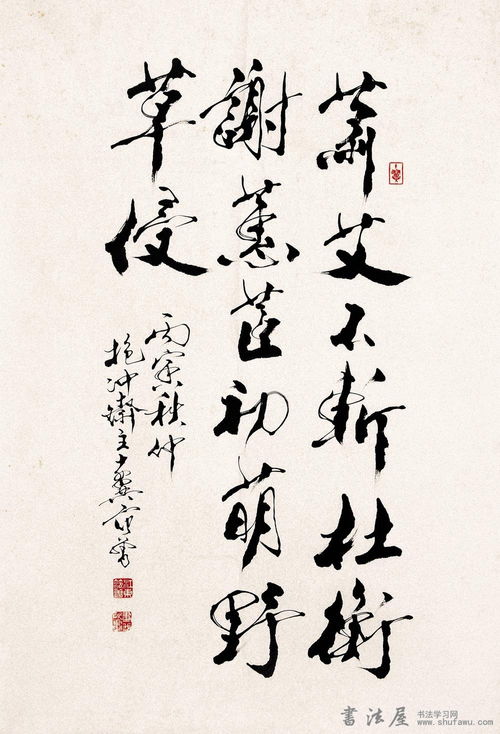 蕭艾不斬杜衡
謝蕙茝初萌野
草侵
丙寅秋仲
抱冲齋主十翼范曾
書法屋
书法学习网
www.shufawu.com